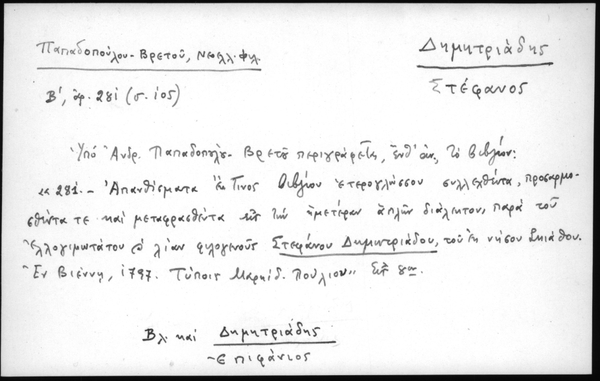 Παπαδοπούλου-Βρετοῦ, Νεοελλ. φιλ.
Β', ἀρ. 281 (σ. 105)
Δημητριάδης
Στέφανος
Ὑπό Ἀνδρ. Παπαδοπούλου-Βρετοῦ περιγράφεται, τό βιβλίον:
«281.- Ἀπανθίσματα ἔκ τινος βιβλίου ἑτερογλώσσου συλλεχθέντα, προσαρμο-
σθέντα τε καί μεταφρασθέντα εἰς τήν ἡμετέραν ἁπλῆν διάλεκτον, παρά τοῦ
Ἐλλογιμωτάτου λίαν φιλογενοῦς Στεφάνου Δημητριάδου, τοῦ ἐκ νήσου Σκιάθου.
Ἐν Βιέννῃ, 1797. Τύποις Μαρκίδ. Πούλιου» 8ον.
Βλ. καί Δημητριάδης
Ἐπιφάνιος